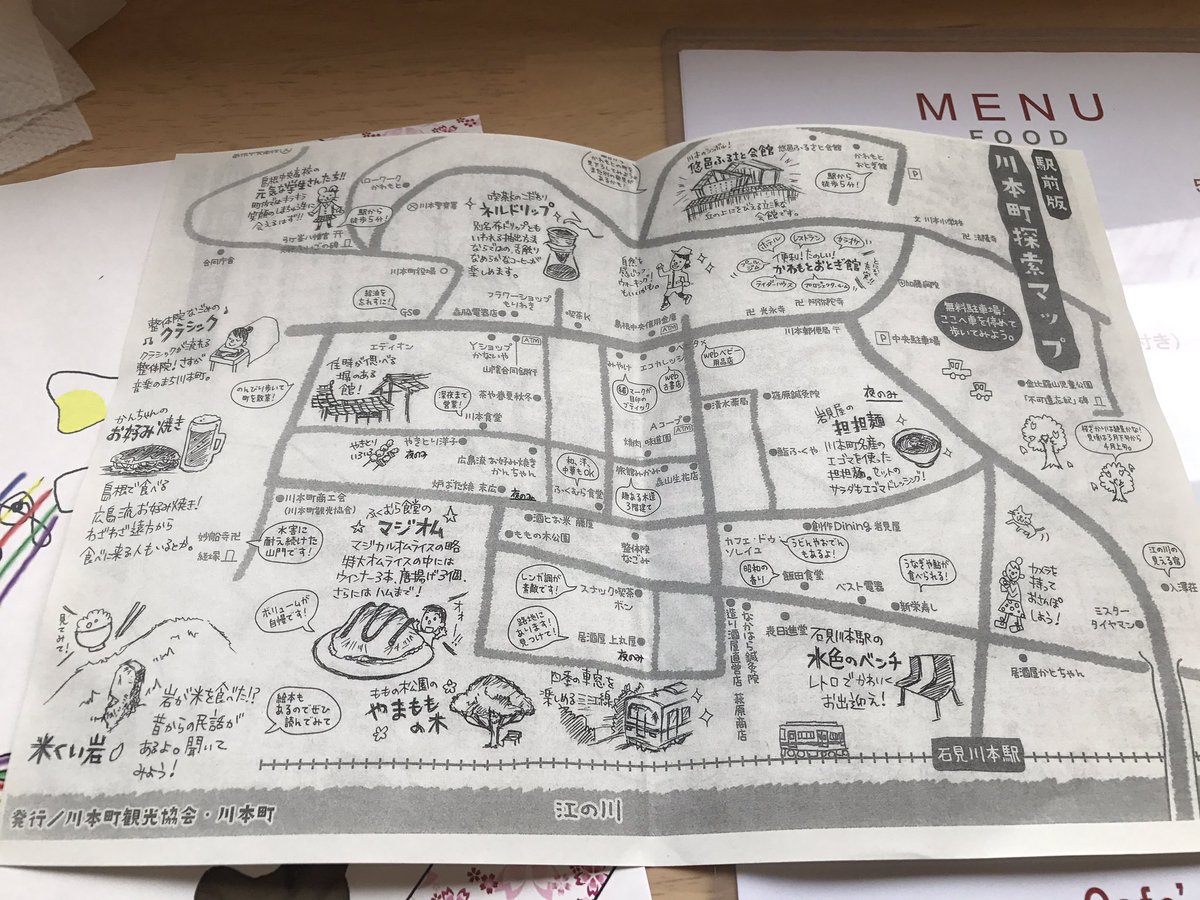 MENU
FOOD
駅前版
川本町探索マップ
島根中央高校の
元気な学生さんたち!!
ハローワーク
かわもと
駅から
徒歩5分!
川本警察署
合同庁舎
川本町役場
給油を
忘れずに!
GS
喫茶Kのこだわり
ネルドリップ
別名布ドリップとも
いわれる抽出方法
ならではの、舌触り
なめらかなコーヒーが
楽しめます。
川本のシンボル!
悠邑ふるさと会館
丘の上にそびえる立派な
会館です。
悠邑ふるさと会館
かわもと
おとぎ館
駅から
徒歩5分!
P
文 川本小学校
卍 法隆寺
自然を
感じて
ウォーキング!
ホテル
レストラン
カラオケ
便利!たのしい!
かわもとおとぎ館
ライダーハウス
加藤病院
無料駐車場!
ここへ車を停めて
歩いてみよう。
卍 光永寺
卍 阿弥陀寺
川本郵便局 〒
P 中央駐車場
金比羅山児童公園
「不可直忘妃」碑
フラワーショップ
もりわき
森脇電器店
喫茶K
島根中央信用金庫
ATM
整体院なごみの
クラシック
クラシックが流れる
整体院!さすが
音楽のまち川本町。
のんびり歩いて
町を散策!
エディオン
佳時が偲べる
塀のある
館!
Yショップ
かないや
ATM
山陰合同銀行
茶や春夏秋冬
深夜まで
営業!
川本食堂
みやけ
エコカレッジ
web
古書店
webベビー
用品店
マークが
目印の
ブティック
Aコープ
ATM
焼肉 味道園
清水薬局
篠原鍼灸院
鮨ふくや
夜のみ
岩見屋の
担担麺
川本町名産の
エゴマを使った
担担麺。セットの
サラダもエゴマドレーシング!
かんちゃんの
お好み焼き
島根で食べる
広島流お好み焼き!
わざわざ遠方から
食べに来る人もいるとか。
やきとり
いろいろ
やきとり洋子
夜のみ
広島流 お好み焼き
かんちゃん
炉ばた焼 末広
夜のみ
和、洋、
中華もOK
ふくむら食堂
旅館みかみ
趣ある木造
3階建て
森山生花店
川本町商工会
(川本町観光協会)
水害に
耐え続けた
山門です!
妙船寺卍
経塚
ふくむら食堂の
マジオム
マジカルオムライスの略
特大オムライスの中には
ウィンナー3本、唐揚げ3個、
さらにはハムまで!
ボリュームが
自慢です!
酒とお米 藤屋
ももの木公園
整体院
なごみ
カフェ・ドゥ
ソレイユ
創作Dining 岩見屋
うどんやおでん
もあるよ!
昭和の
香り
飯田食堂
ベスト電器
うなぎや鮎が
食べられる!
新栄寿し
レンガ調が
素敵です!
スナック喫茶
ボン
路地に
あります!
見つけて!
居酒屋 上丸屋
夜のみ
なかはら鍼灸院
造り酒屋直営店
萩原商店
幾日進堂
石見川本駅の
水色のベンチ
レトロでかわいく
お出迎え!
カメラを
持って
おさんぽ
しよう!
江の川の
見える宿
入澤荘
ミスター
タイヤマン
居酒屋かとちゃん
見てみて!
岩が米を食べた!?
昔からの民話が
あるよ。聞いて
みよう!
米くい岩
絵本も
あるのでぜひ
読んでみて
ももの木公園の
やまもも
の木
四季の車窓を
楽しめる三江線
石見川本駅
江の川
発行/川本町観光協会・川本町